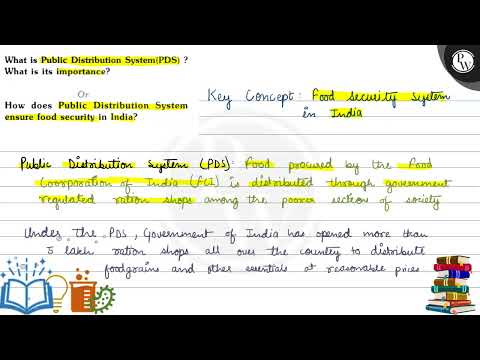 What is Public Distribution System(PDS) ?
What is its importance?
Or
How does Public Distribution System
ensure food security in India?
Key Concept: Food security system
in India
Public Distribution System (PDS) Food procured by the Food
Corporation of India (FCI) is distributed through government
regulated ration shops among the poorer section of society
Under the PDS, Government of India has opened more than
5 lakh ration shops all over the country to distribute
foodgrains and other essentials at reasonable prices